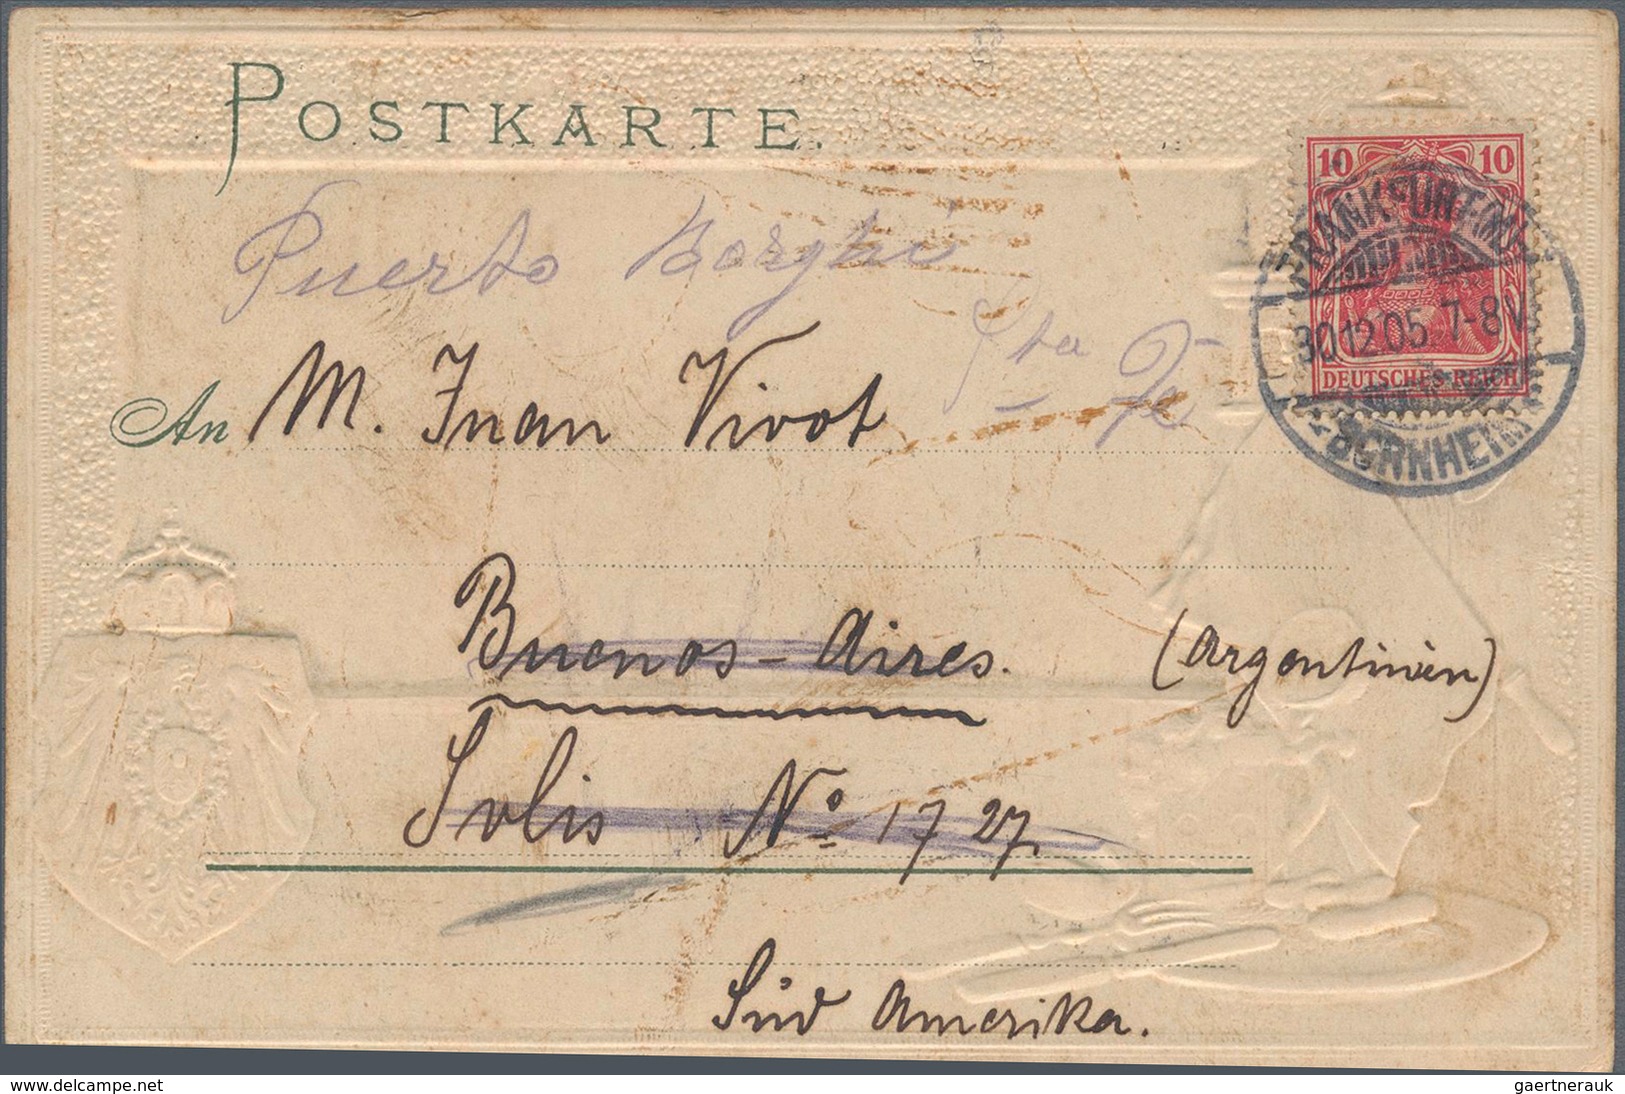 POSTKARTE.
10 10
FRANKFURT (MAIN)
30.12.05. 7-8V.
DEUTSCHES REICH
BORNHEIM
Puerto Borghi
Sta Fe
An M. Juan Vivot
Buenos-Aires. (Argentinien)
Solis No 1727.
Süd Amerika.
www.delcampe.net
gaertnerauk